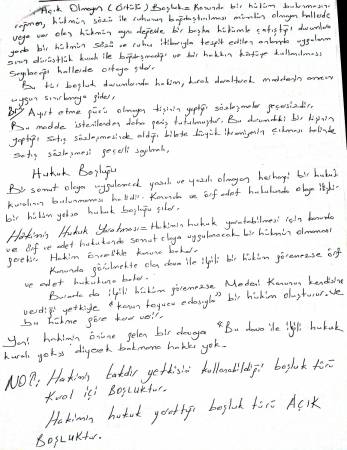 Açık Olmayan (Örtülü) Boşluk= Kanunda bir hüküm bulunmasına
rağmen, hükmün sözü ile ruhunun bağdaştırılması mümkün olmayan hallerde
veya var olan hükmün aynı değerde bir başka hükümle çatıştığı durumlarda
yada bir hükmün sözü ve ruhu itibarıyla tespit edilen anlamda uygulanma
sının dürüstlük kuralı ile bağdaşmadığı ve bir hakkın kötüye kullanılması
sayılacağı hallerde ortaya çıkar.
Bu tür boşluk durumlarında hakim, kuralı daraltarak maddenin amacına
uygun sınırlamaya gider.
Ayırt etme gücü olmayan kişinin yaptığı sözleşmeler geçersizdir.
Bu madde istenilenden daha geniş tutulmuştur. Bu durumdaki bir kişinin
yaptığı satış sözleşmesinde aldığı bilete büyük ikramiyenin çıkması halinde
satış sözleşmesi geçerli sayılmalı.
Hukuk Boşluğu
Bir somut olaya uygulanacak yazılı ve yazılı olmayan herhangi bir hukuk
kuralının bulunmaması halidir. Kanunda ve örf adet hukukunda olaya ilişkin
bir hüküm yoksa hukuk boşluğu çıkar.
Hakimin Hukuk Yaratması= Hakimin hukuk yaratabilmesi için kanunda
ve örf ve adet hukukunda somut olaya uygulanacak bir hükmün olmaması
gerekir. Hakim öncelikle kanuna bakar.
Kanunda görülmekte olan dava ile ilgili bir hüküm göremezse örf
ve adet hukukuna bakar.
Burada da ilgili hüküm göremezse Medeni Kanunun kendisine
verdiği yetkiyle "kanun koyucu edasıyla" bir hüküm oluşturur ve
bu hükme göre karar verir.
Yani hakimin önüne gelen bir davaya "Bu dava ile ilgili hukuk
kuralı yoksa" diyecek bakmama hakkı yok.
NOT: Hakimin takdir yetkisini kullanabildiği boşluk türü
Kural içi BOŞLUKtur.
Hakimin hukuk yarattığı boşluk türü AÇIK
BOŞLUKtur.